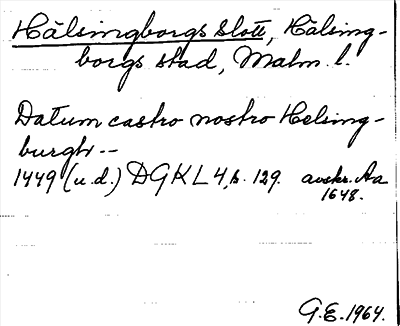 Hälsingborgs slott, Hälsing-
borgs stad, Malm. l.
Datum castro nostro Helsing-
burgh --
1449 (u.d.) DGKL 4, s. 129. avskr. Aa
1648.
G.E. 1964.